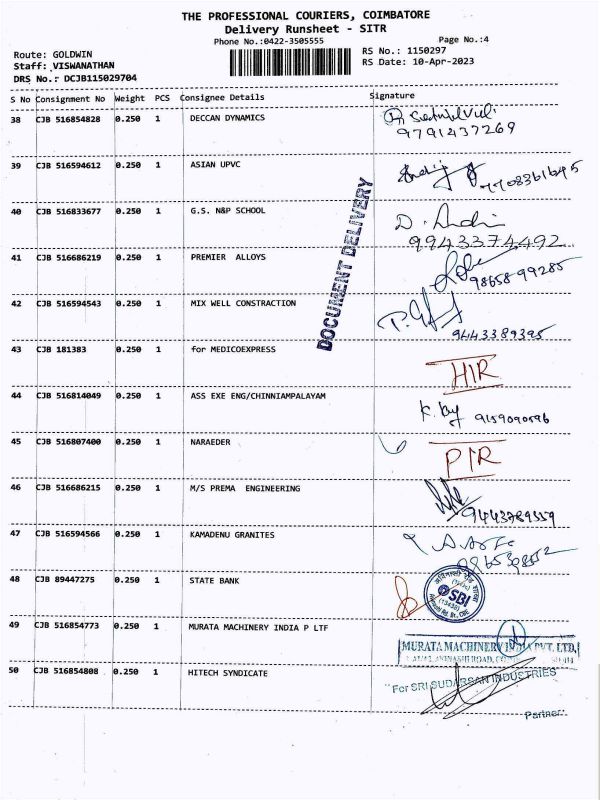 THE PROFESSIONAL COURIERS, COIMBATORE
Delivery Runsheet - SITR
Phone No.:0422-3505555 Page No.:4
Route: GOLDWIN RS No.: 1150297
Staff: VISWANATHAN RS Date: 10-Apr-2023
DRS No.: DCJB115029704
S No Consignment No Weight PCS Consignee Details Signature
38 CJB 516854828 0.250 1 DECCAN DYNAMICS
9791437269
39 CJB 516594612 0.250 1 ASIAN UPVC
7708361645
40 CJB 516833677 0.250 1 G.S. N&P SCHOOL
9943374492
41 CJB 516686219 0.250 1 PREMIER ALLOYS
98658 99285
42 CJB 516594543 0.250 1 MIX WELL CONSTRACTION
9443389395
DOCUMENT DELIVERY
43 CJB 181383 0.250 1 for MEDICOEXPRESS HIR
44 CJB 516814049 0.250 1 ASS EXE ENG/CHINNIAMPALAYAM
45 CJB 516807400 0.250 1 NARAEDER PIR
46 CJB 516686215 0.250 1 M/S PREMA ENGINEERING
9443789559
47 CJB 516594566 0.250 1 KAMADENU GRANITES
48 CJB 89447275 0.250 1 STATE BANK SBI
49 CJB 516854773 0.250 1 MURATA MACHINERY INDIA P LTF
MURATA MACHINERY INDIA PVT. LTD.
50 CJB 516854808 0.250 1 HITECH SYNDICATE
For SRI SUDARSAN INDUSTRIES
Partner